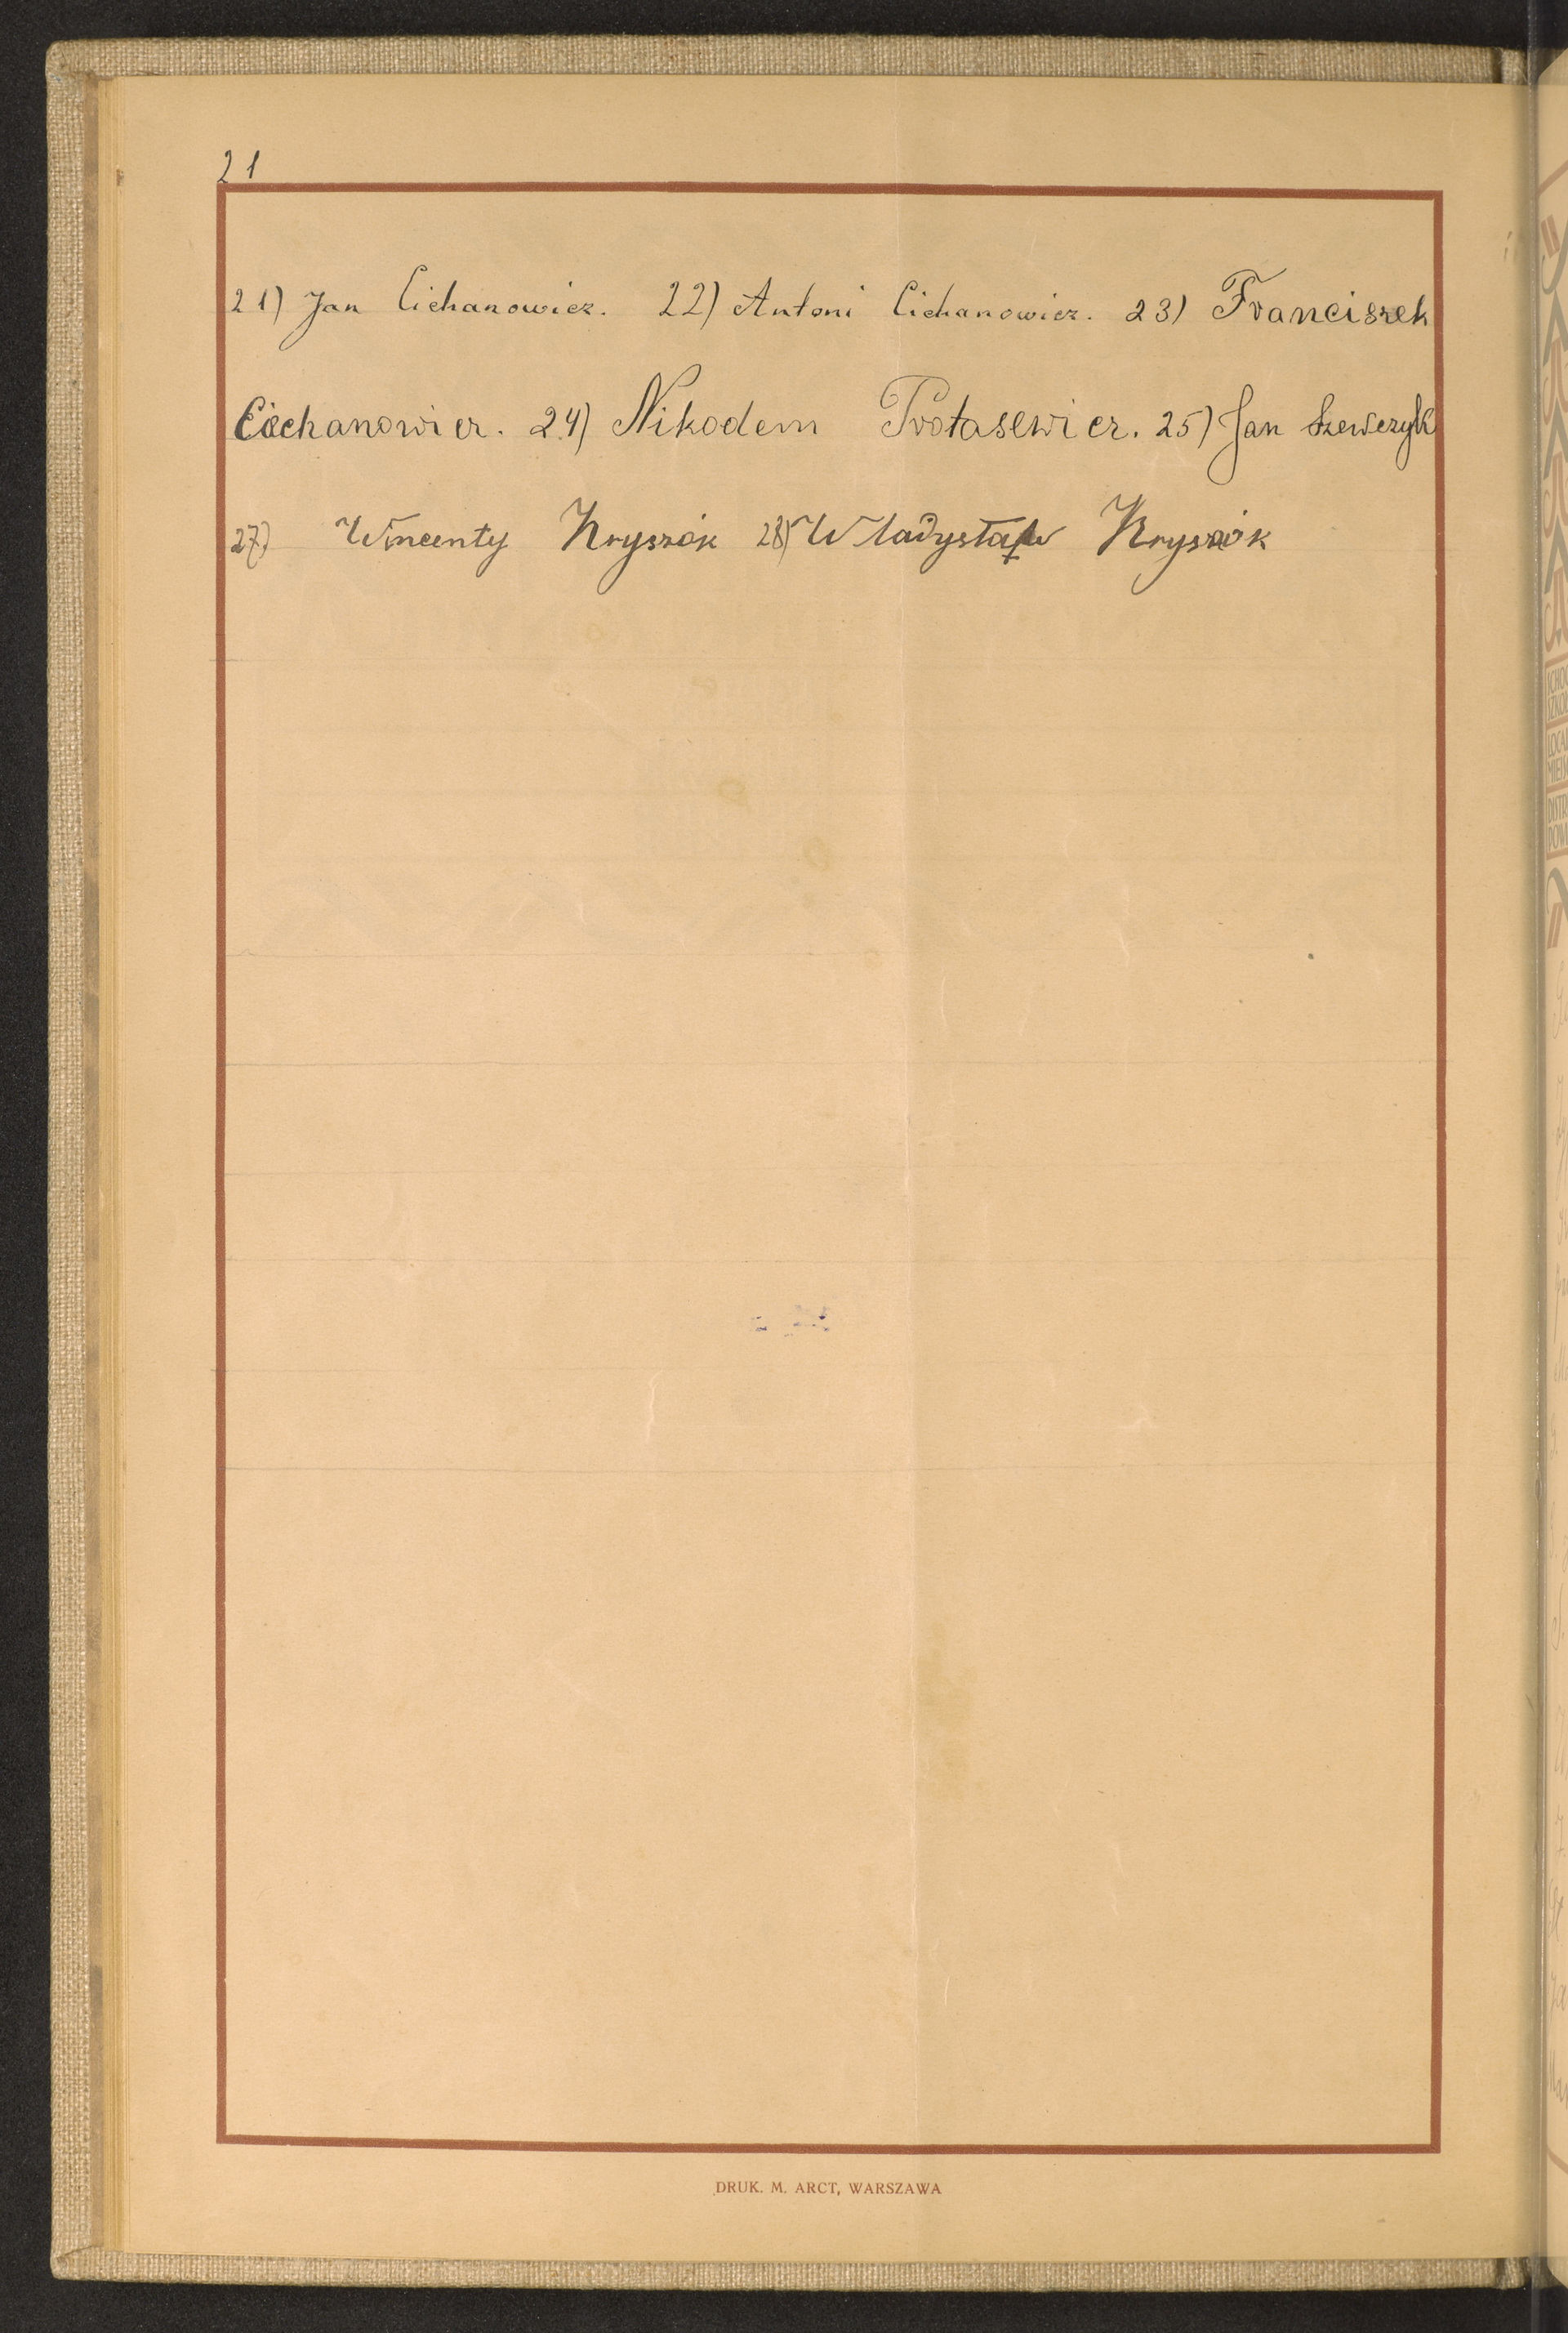 21
21) Jan Cichanowicz. 22) Antoni Cichanowicz. 23) Franciszek
Ciechanowicz. 24) Nikodem Protasewicz. 25) Jan Szewczyk
27) Wincenty Kryszók 28) Władysław Kryszók
DRUK. M. ARCT, WARSZAWA